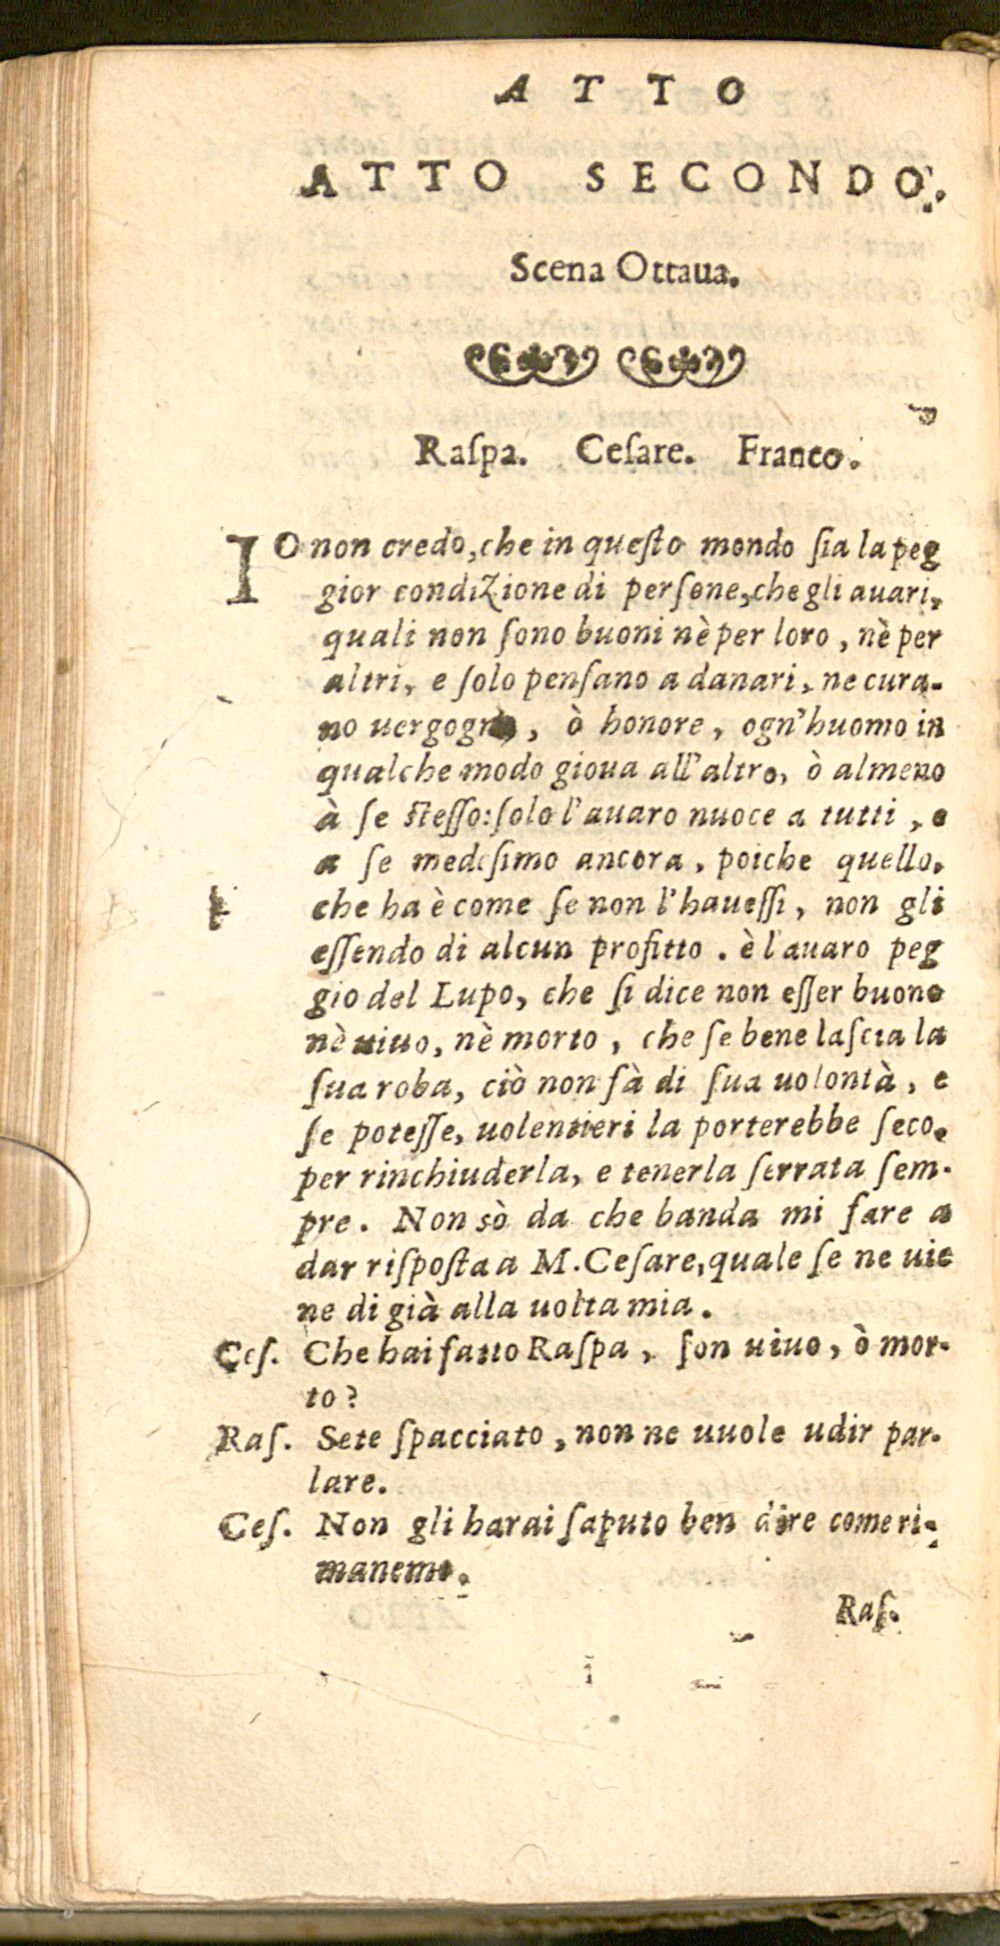 ATTO
ATTO SECONDO.
Scena Ottaua.
Raſpa. Ceſare. Franco.
IO non credo, che in queſto mondo ſia la peg
gior condizione di perſone, che gli auari,
quali non ſono buoni nè per loro, nè per
altri, e ſolo penſano a danari, ne cura-
no uergogna, ò honore, ogn'huomo in
qualche modo gioua all'altro, ò almeno
à ſe ſteſſo: ſolo l'auaro nuoce a tutti, e
a ſe medeſimo ancora, poiche quello,
che ha è come ſe non l'haueſſi, non gli
eſſendo di alcun profitto. è l'auaro peg
gio del Lupo, che ſi dice non eſſer buono
nè uiuo, nè morto, che ſe bene laſcia la
ſua roba, ciò non fà di ſua uolontà, e
ſe poteſſe, uolentieri la porterebbe ſeco,
per rinchiuderla, e tenerla ſerrata ſem-
pre. Non sò da che banda mi fare a
dar riſpoſta a M. Ceſare, quale ſe ne uie
ne di già alla uolta mia.
Ceſ. Che hai fatto Raſpa, ſon uiuo, ò mor-
to?
Raſ. Sete ſpacciato, non ne uuole udir par-
lare.
Ceſ. Non gli harai ſaputo ben dire come ri-
manemo.
Raſ.